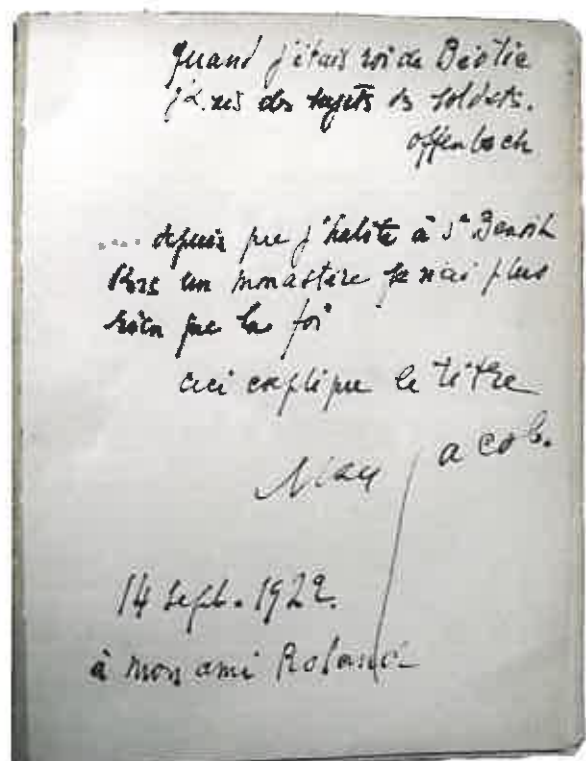 Quand j'étais roi de Béotie
j'avais des sujets des soldats.
Offenbach
.... depuis que j'habite à St Benoit
dans un monastère je n'ai plus
rien que la foi
ceci explique le titre
Max Jacob.
14 Sept. 1922.
à mon ami Roland